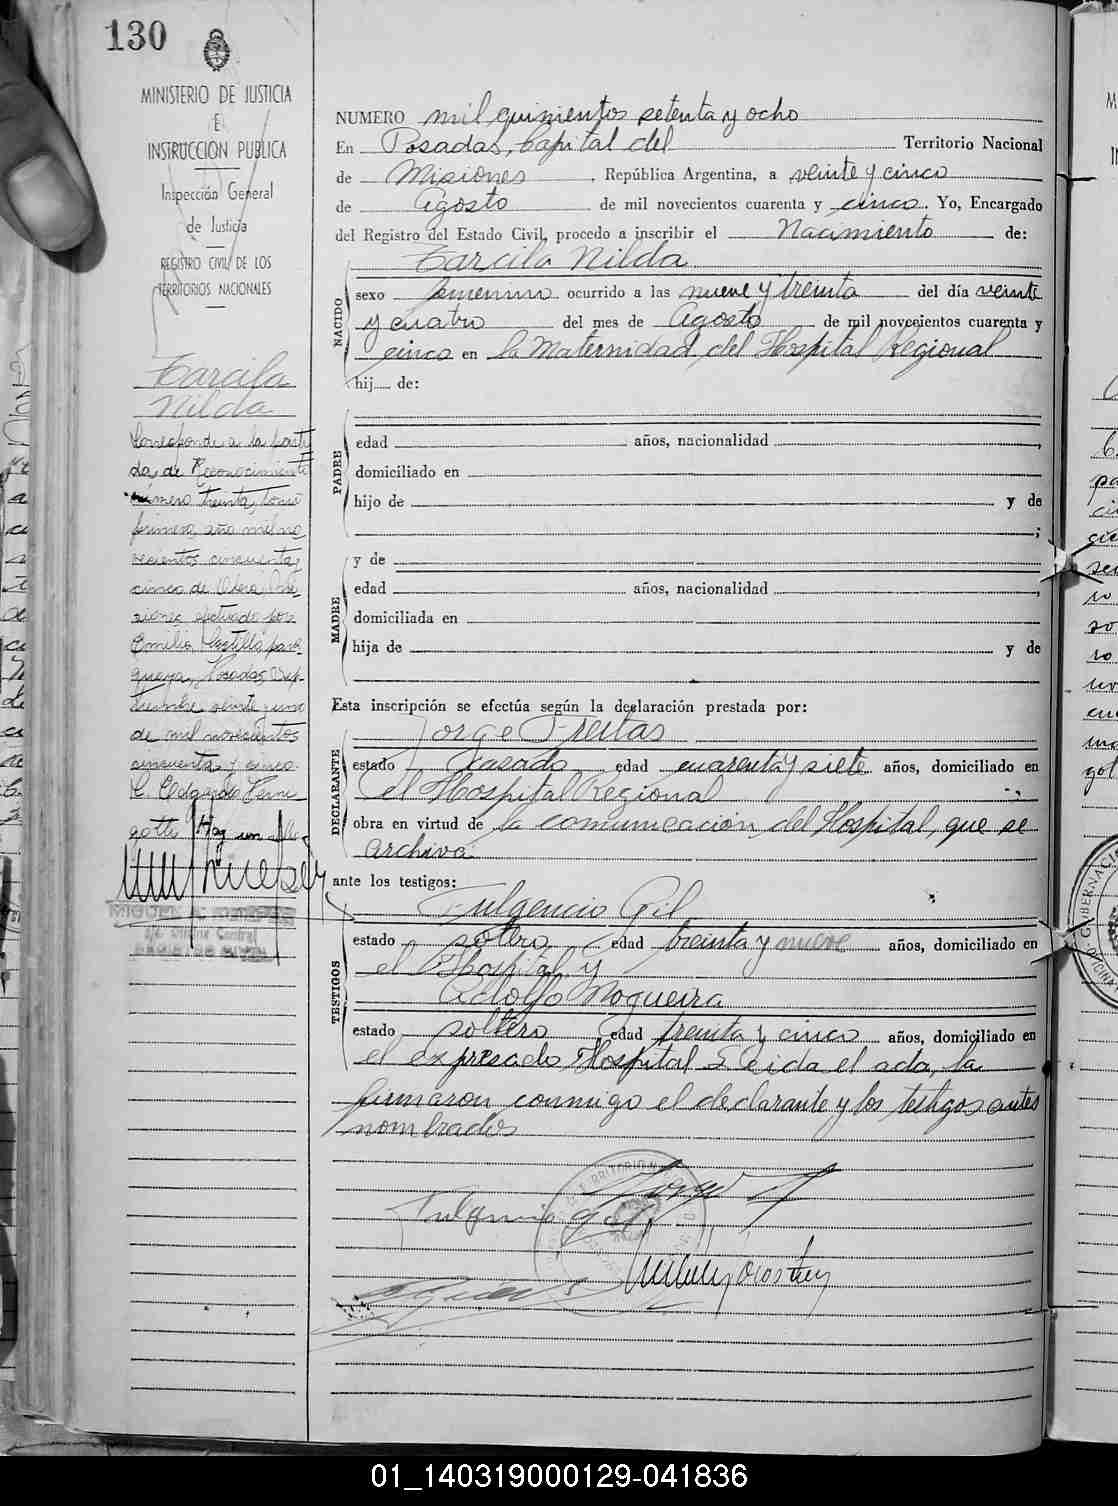 130
MINISTERIO DE JUSTICIA
E
INSTRUCCION PUBLICA
Inspección General
de Justicia
REGISTRO CIVIL DE LOS
TERRITORIOS NACIONALES
Tarcila
Nilda
Corresponde a la parti
da de Reconocimiento
número treinta, tomo
primero, año mil no
vecientos cincuenta y
cinco de Oberá, Mi
siones efectuado por
Emilia Castilla, para
guaya, Posadas, Sep
tiembre veinte y uno
de mil novecientos
cincuenta y cinco.
Hay un
NUMERO mil quinientos setenta y ocho
En Posadas, Capital del Territorio Nacional
de Misiones, República Argentina, a veinte y cinco
de Agosto de mil novecientos cuarenta y cinco. Yo, Encargado
del Registro del Estado Civil, procedo a inscribir el Nacimiento de:
Tarcila Nilda
NACIDO
sexo femenino ocurrido a las nueve y treinta del día veinte
y cuatro del mes de Agosto de mil novecientos cuarenta y
cinco en la Maternidad del Hospital Regional
hij de:
PADRE
edad años, nacionalidad ,
domiciliado en
hijo de y de
;
MADRE
y de
edad años, nacionalidad ,
domiciliada en
hija de y de
Esta inscripción se efectúa según la declaración prestada por:
Jorge Freitas
DECLARANTE
estado casado edad cuarenta y siete años, domiciliado en
el Hospital Regional
obra en virtud de la comunicación del Hospital, que se
archiva
ante los testigos:
Fulgencio Gil
TESTIGOS
estado soltero edad treinta y nueve años, domiciliado en
el Hospital y
Adolfo Nogueira
estado soltero edad treinta y cinco años, domiciliado en
el expresado Hospital Leida el acta, la
firmaron conmigo el declarante y los testigos antes
nombrados
Fulgencio Gil
01_140319000129-041836